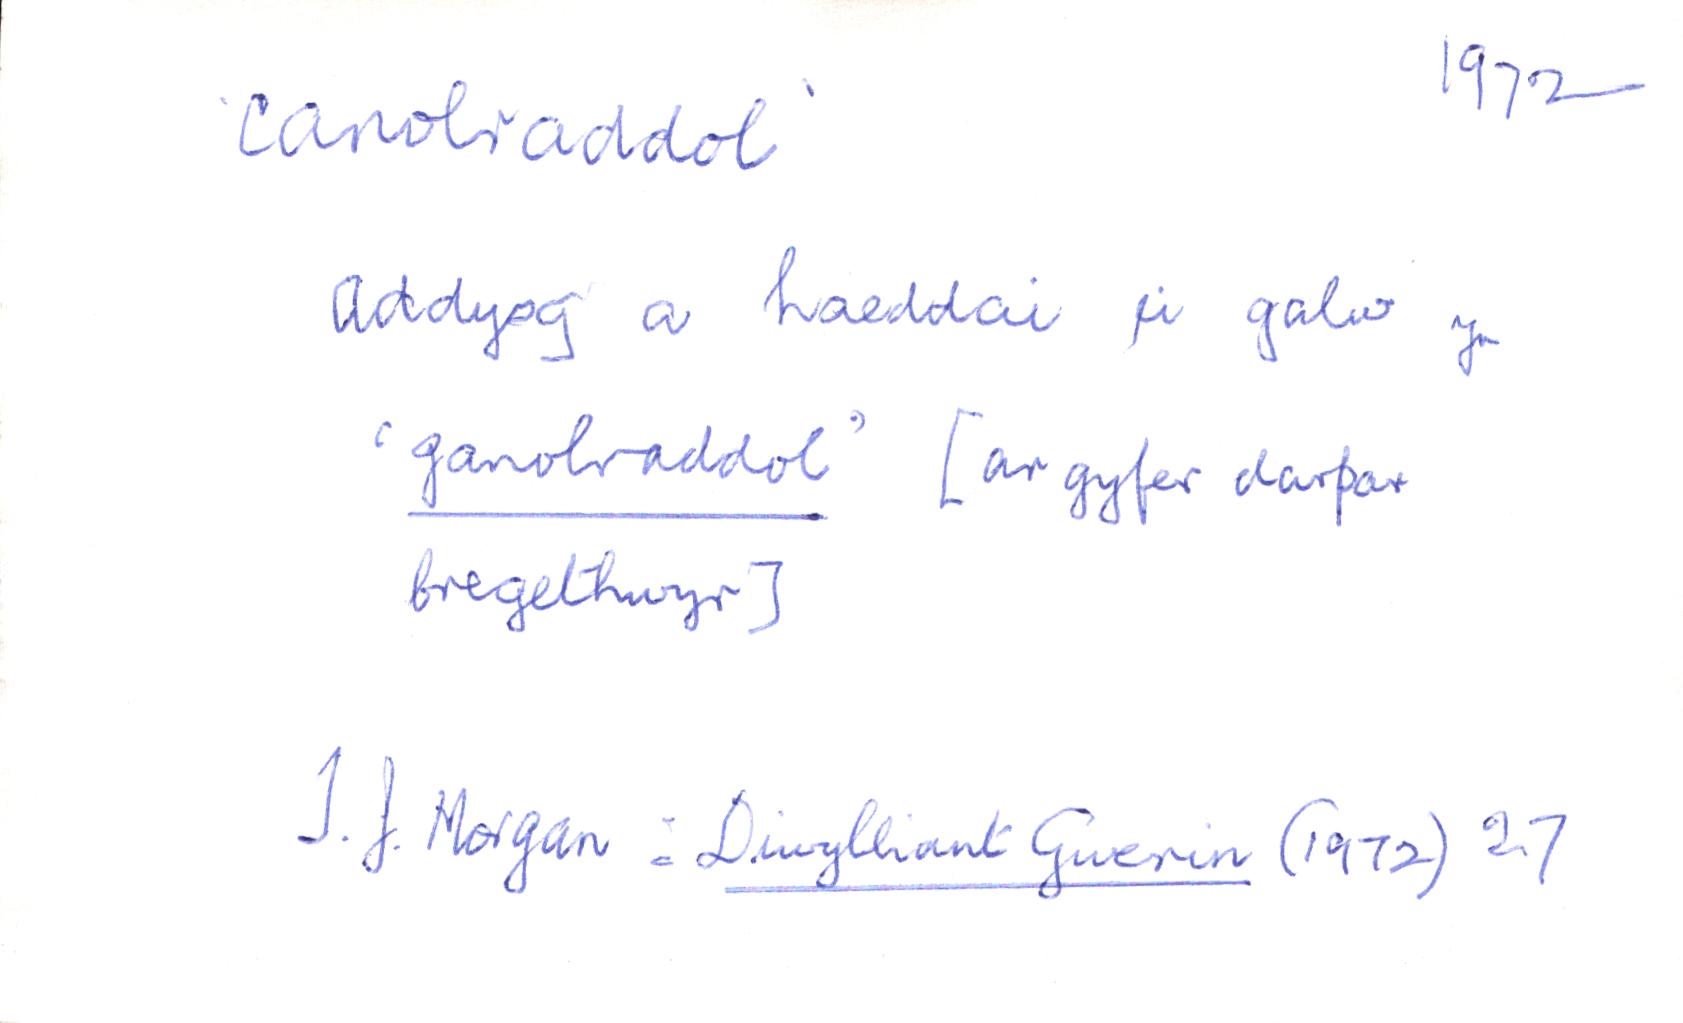 1972
'canolraddol'
Addysg a haeddai ei galw yn
'ganolraddol' [ar gyfer darpar
bregethwyr]
J. J. Morgan : Diwylliant Gwerin (1972) 27